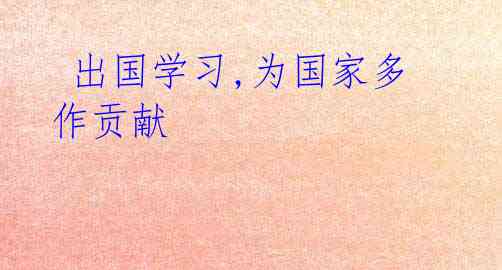 出国学习,为国家多
作贡献